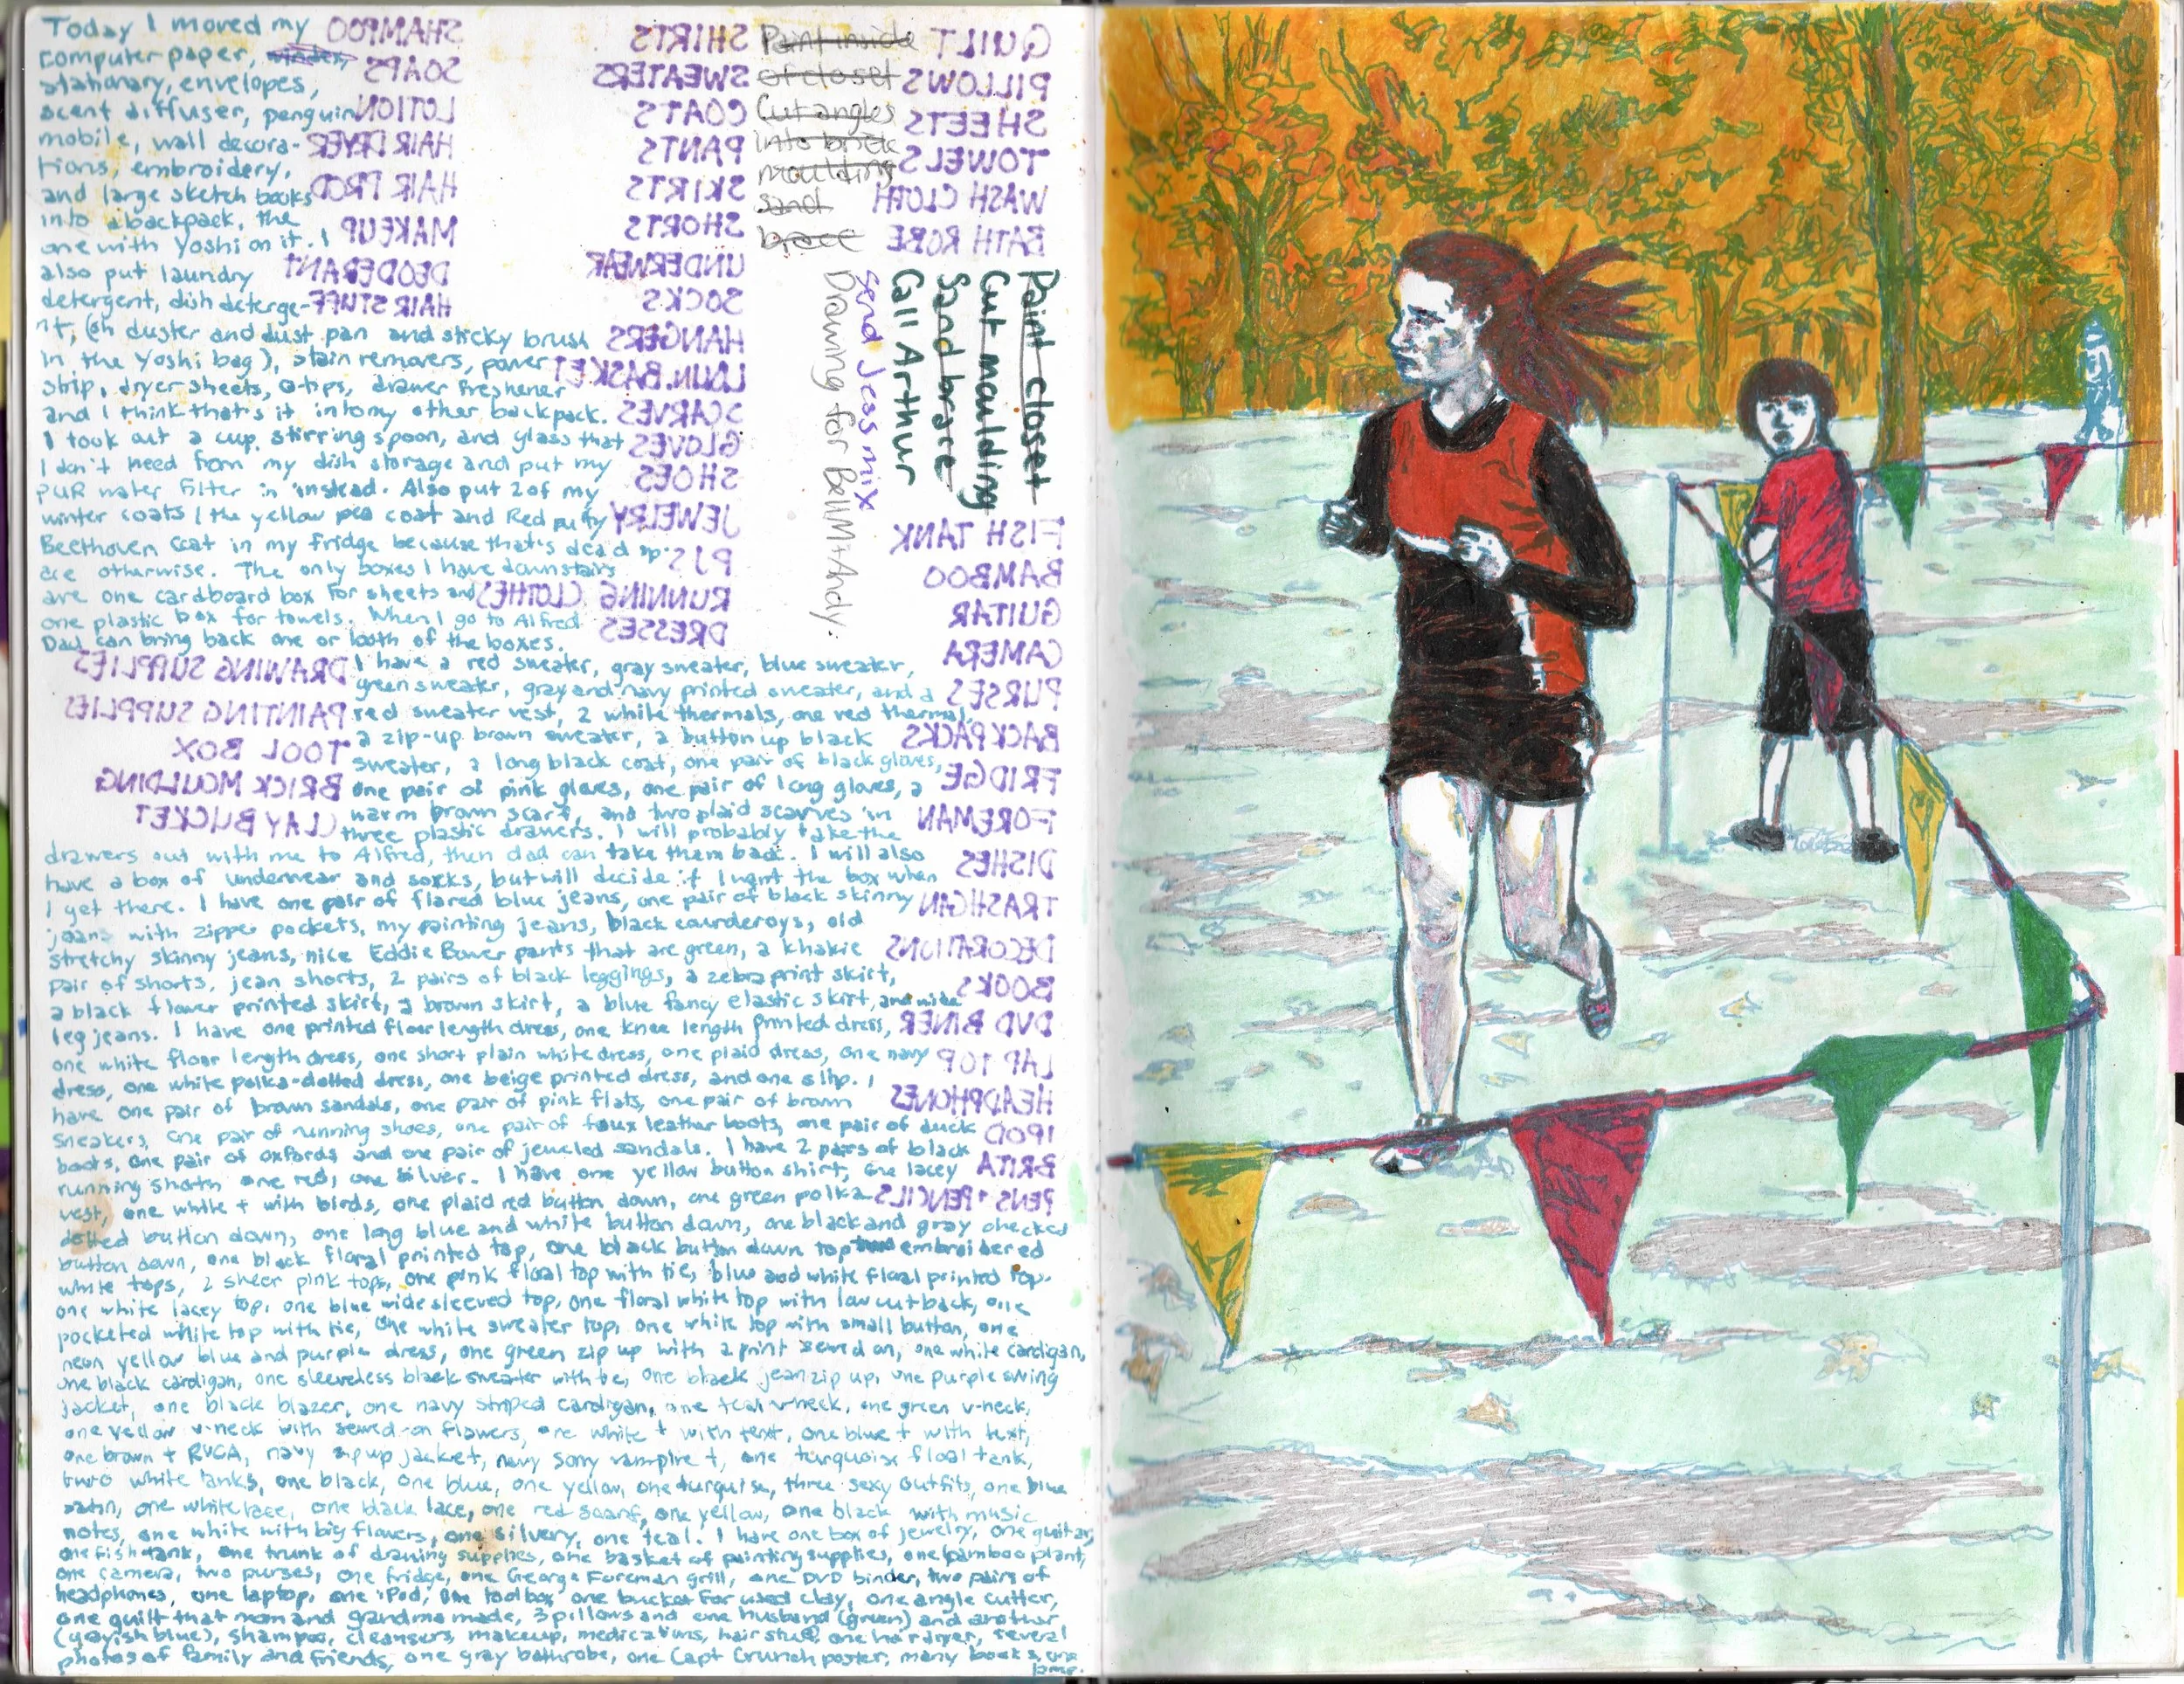 Today I moved my
computer paper,
stationary, envelopes,
scent diffuser, penguin
mobile, wall decora-
tions, embroidery,
and large sketch books
into a backpack, the
one with Yoshi on it. I
also put laundry
detergent, dish deterge-
nt, (oh duster and dust pan and sticky brush
in the Yoshi bag), stain removers, power
strip, dryer sheets, q-tips, drawer freshener
and I think that's it into my other backpack.
I took out a cup, stirring spoon, and glass that
I don't need from my dish storage and put my
PUR water filter in instead. Also put 2 of my
winter coats (the yellow pea coat and Red puffy
Beethoven coat in my fridge because that's dead sp-
ace otherwise. The only boxes I have downstairs
are one cardboard box for sheets and
one plastic box for towels. When I go to Alfred
Dad can bring back one or both of the boxes.
I have a red sweater, gray sweater, blue sweater,
green sweater, gray and navy printed sweater, and a
red sweater vest, 2 white thermals, one red thermal,
a zip-up brown sweater, a button up black
sweater, a long black coat, one pair of black gloves,
one pair of pink gloves, one pair of long gloves, a
warm brown scarf, and two plaid scarves in
three plastic drawers. I will probably take the
drawers out with me to Alfred, then dad can take them back. I will also
have a box of underwear and socks, but will decide if I want the box when
I get there. I have one pair of flared blue jeans, one pair of black skinny
jeans with zipper pockets, my painting jeans, black courderoys, old
stretchy skinny jeans, nice Eddie Bower pants that are green, a khakie
pair of shorts, jean shorts, 2 pairs of black leggings, a zebra print skirt,
a black flower printed skirt, a brown skirt, a blue fancy elastic skirt, and wide
leg jeans. I have one printed floor length dress, one knee length printed dress,
one white floor length dress, one short plain white dress, one plaid dress, one navy
dress, one white polka-dotted dress, one beige printed dress, and one slip. I
have one pair of brown sandals, one pair of pink flats, one pair of brown
sneakers, one pair of running shoes, one pair of faux leather boots, one pair of duck
boots, one pair of oxfords and one pair of jeweled sandals. I have 2 pairs of black
running shorts one red, one silver. I have one yellow button shirt, one lacey
vest, one white t with birds, one plaid red button down, one green polka
dotted button down, one long blue and white button down, one black and gray checked
button down, one black floral printed top, one black button down top embroidered
white tops, 2 sheer pink tops, one pink floral top with tie, blue and white floral printed top.
one white lacey top, one blue wide sleeved top, one floral white top with low cut back, one
pocketed white top with tie, one white sweater top, one white top with small button, one
neon yellow blue and purple dress, one green zip up with a print sewed on, one white cardigan,
one black cardigan, one sleeveless black sweater with tie, one black jean zip up, one purple swing
jacket, one black blazer, one navy striped cardigan, one teal v-neck, one green v-neck,
one yellow v-neck with sewed-on flowers, one white t with text, one blue t with text,
one brown t RVCA, navy zip up jacket, navy sorry vampire t, one turquoise floal tank,
two white tanks, one black, one blue, one yellow, one turquise, three sexy outfits, one blue
satin, one white lace, one black lace, one red scarf, one yellow, one black with music
notes, one white with big flowers, one silvery, one teal. I have one box of jewelry, one guitar,
one fish tank, one trunk of drawing supplies, one basket of painting supplies, one bamboo plant,
one camera, two purses, one fridge, one George Foreman grill, one DVD binder, two pairs of
headphones, one laptop, one iPod, one toolbox one bucket for used clay, one angle cutter,
one quilt that mom and grandma made, 3 pillows and one husband (green) and another
(grayish blue), shampoo, cleansers, makeup, medications, hair stuff, one hairdryer, several
photos of family and friends, one gray bathrobe, one Capt Crunch poster, many books, one
SHAMPOO
SOAPS
LOTION
HAIR DRYER
HAIR PROD
MAKEUP
DEODERANT
HAIR STUFF
SHIRTS
SWEATERS
COATS
PANTS
SKIRTS
SHORTS
UNDERWEAR
SOCKS
HANGERS
LAUN. BASKET
SCARVES
GLOVES
SHOES
JEWELRY
PJS
RUNNING CLOTHES
DRESSES
DRAWING SUPPLIES
PAINTING SUPPLIES
TOOL BOX
BRICK MOULDING
CLAY BUCKET
Paint inside
of closet
Cut angles
into brick
moulding
sand
brace
QUILT
PILLOWS
SHEETS
TOWELS
WASH CLOTH
BATH ROBE
Paint closet
Cut moulding
Sand brace
Call Arthur
Send Jess mix
Drawing for Ball M + Andy.
FISH TANK
BAMBOO
GUITAR
CAMERA
PURSES
BACKPACKS
FRIDGE
FOREMAN
DISHES
TRASHCAN
DECORATIONS
BOOKS
DVD BINER
LAP TOP
HEADPHONES
IPOD
BRITA
PENS + PENCILS